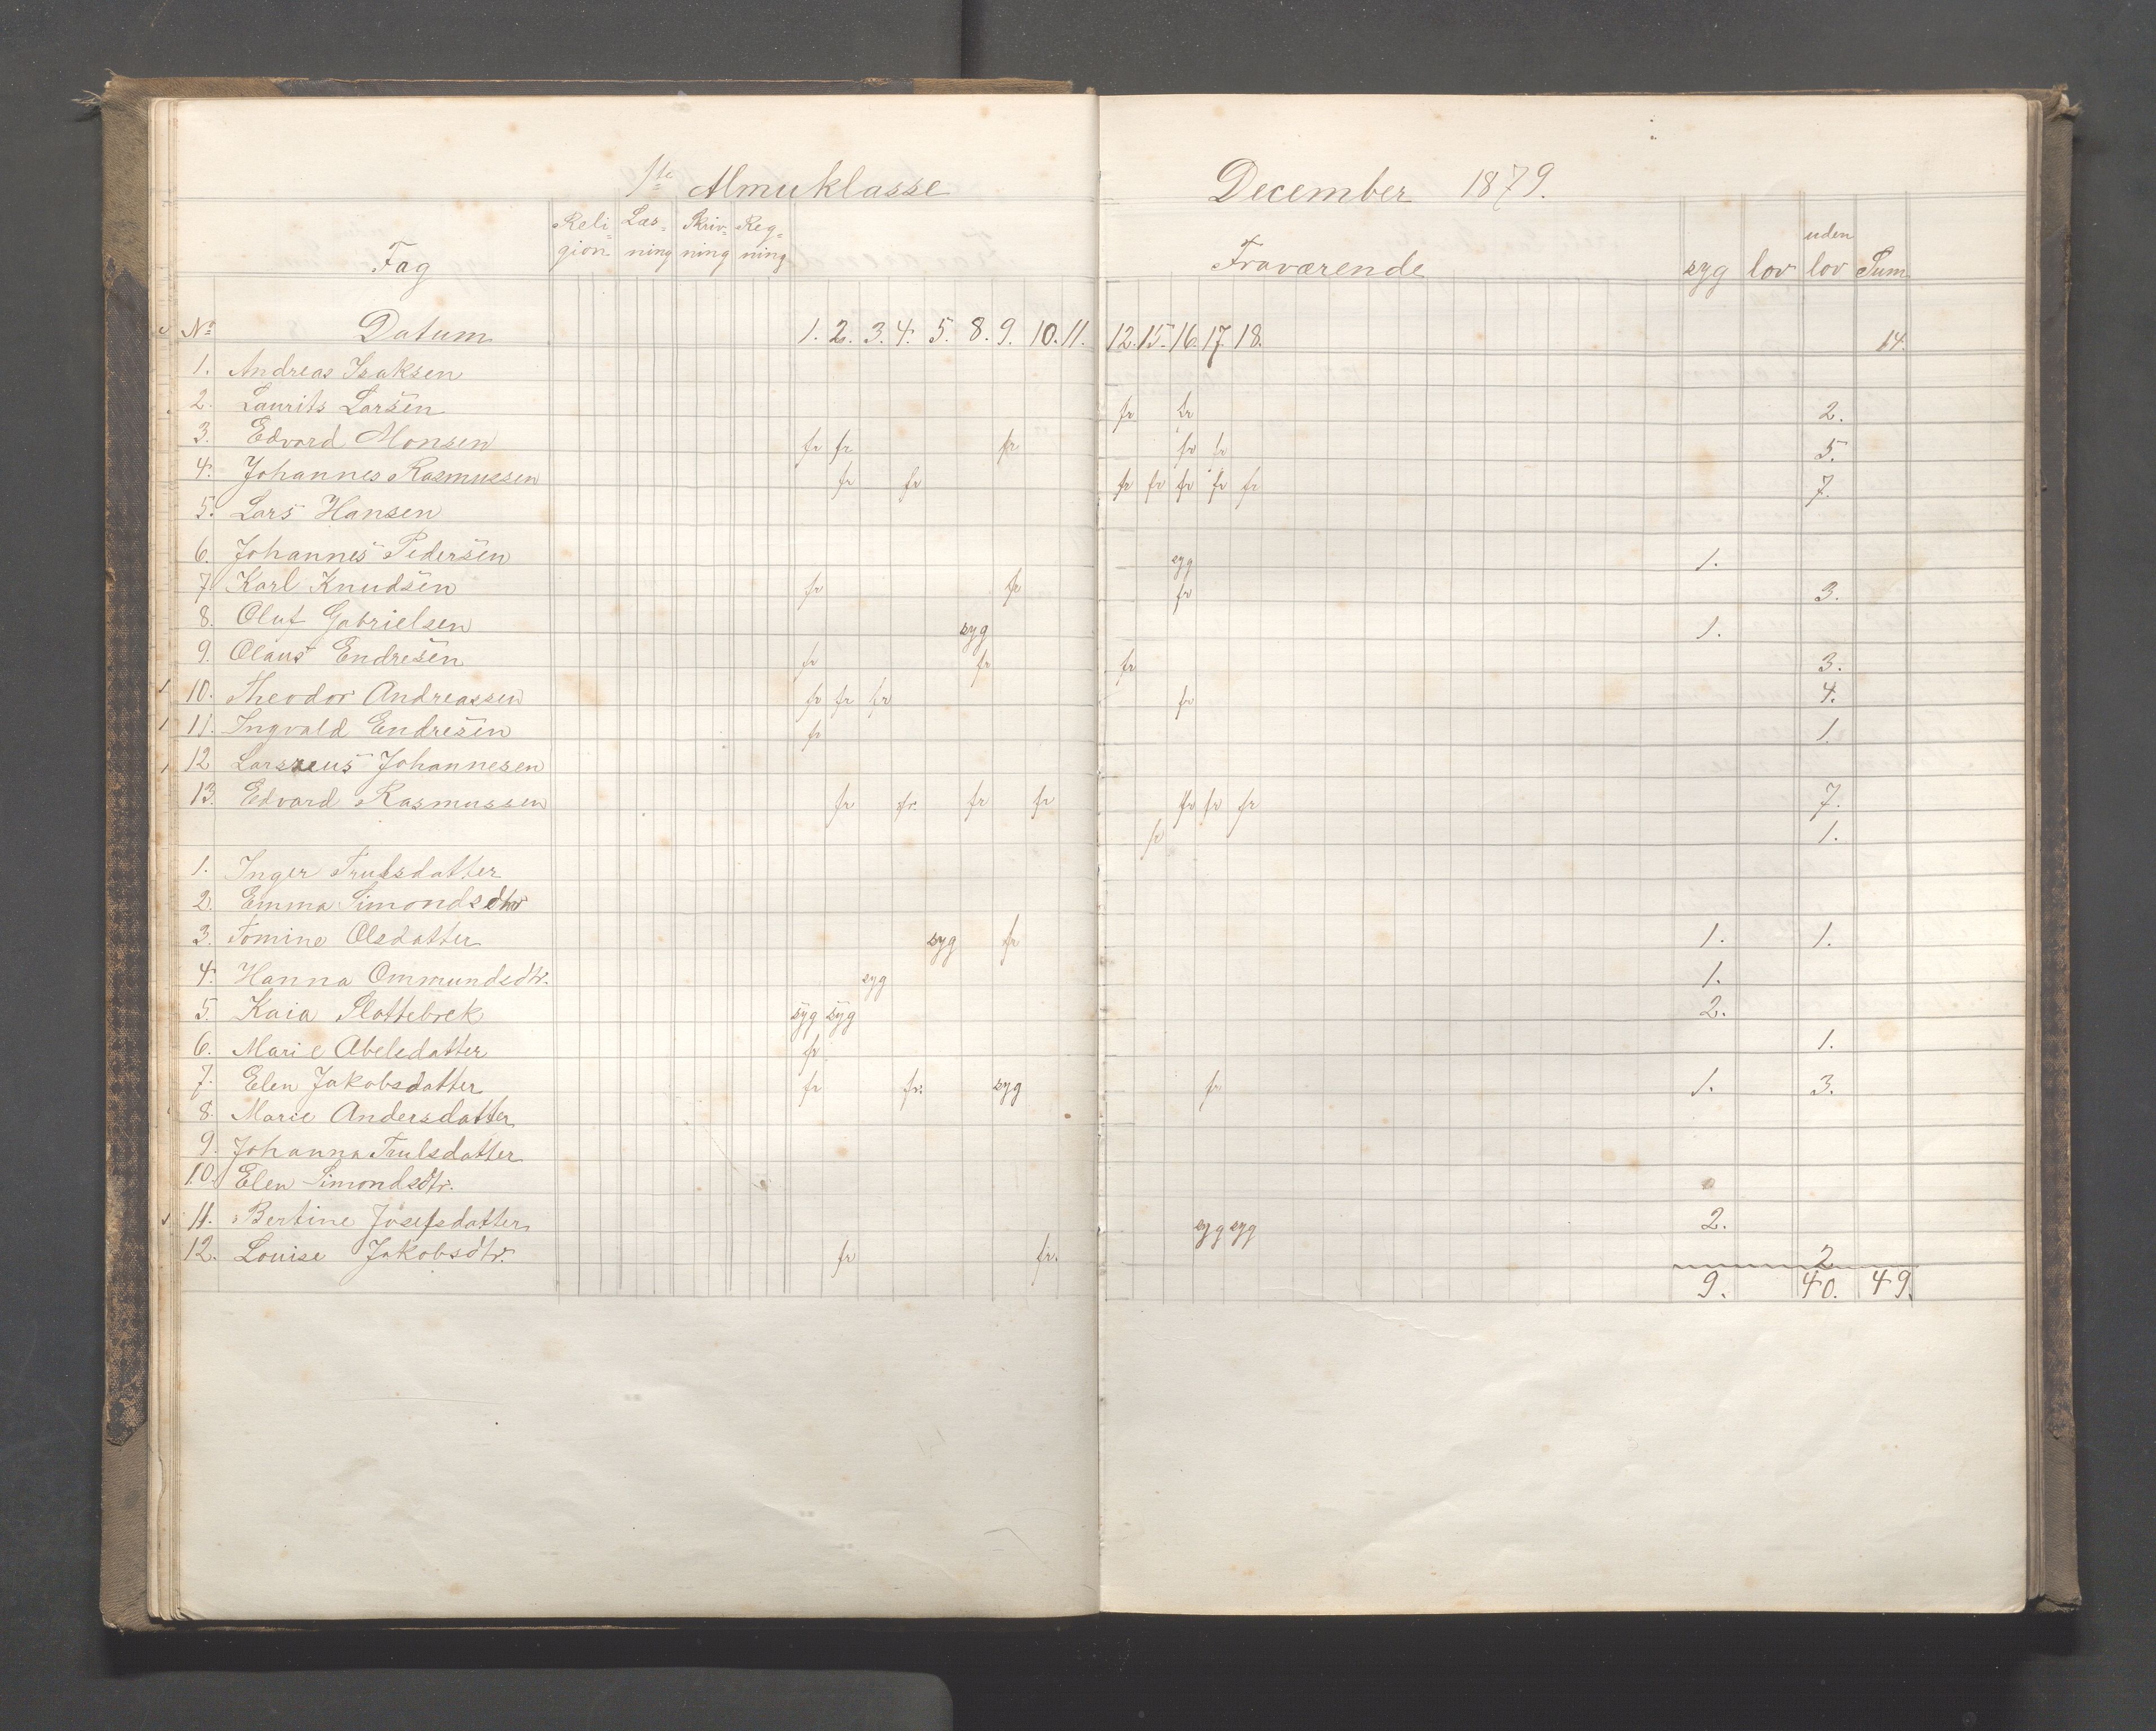 1ste Almuklasse December 1879.
Fag Religion Læsning Skrivning Regning Fraværende syg lov uden lov Sum
No Datum 1. 2. 3. 4. 5. 8. 9. 10. 11. 12. 15. 16. 17. 18. 14.
1. Andreas Isaksen
2. Laurits Larsen fr fr 2.
3. Edvard Monsen fr fr fr fr fr 5.
4. Johannes Rasmussen fr fr fr fr fr fr fr 7.
5. Lars Hansen
6. Johannes Pedersen syg 1.
7 Karl Knudsen fr fr fr 3.
8. Oluf Gabrielsen syg 1.
9. Olaus Endresen fr fr fr 3.
10. Theodor Andreassen fr fr fr fr 4.
11. Ingvald Endresen fr 1.
12 Johannesen
13. Edvard Rasmussen fr fr. fr fr fr fr fr 7.
fr 1.
1. Inger Trulsdatter
2. Emma Simondsdtr
3. Tomine Olsdatter syg fr 1. 1.
4. Hanna Ommundsdtr. syg 1.
5. Kaia Slottebrek syg syg 2.
6. Marie Abelsdatter fr 1.
7. Elen Jakobsdatter fr fr. syg fr 1. 3.
8. Marie Andersdatter
9. Johanna Trulsdatter
10. Elen Simondsdtr.
11. Bertine Josefsdatter syg syg 2.
12. Louise Jakobsdtr. fr fr. 2
9. 40. 49.